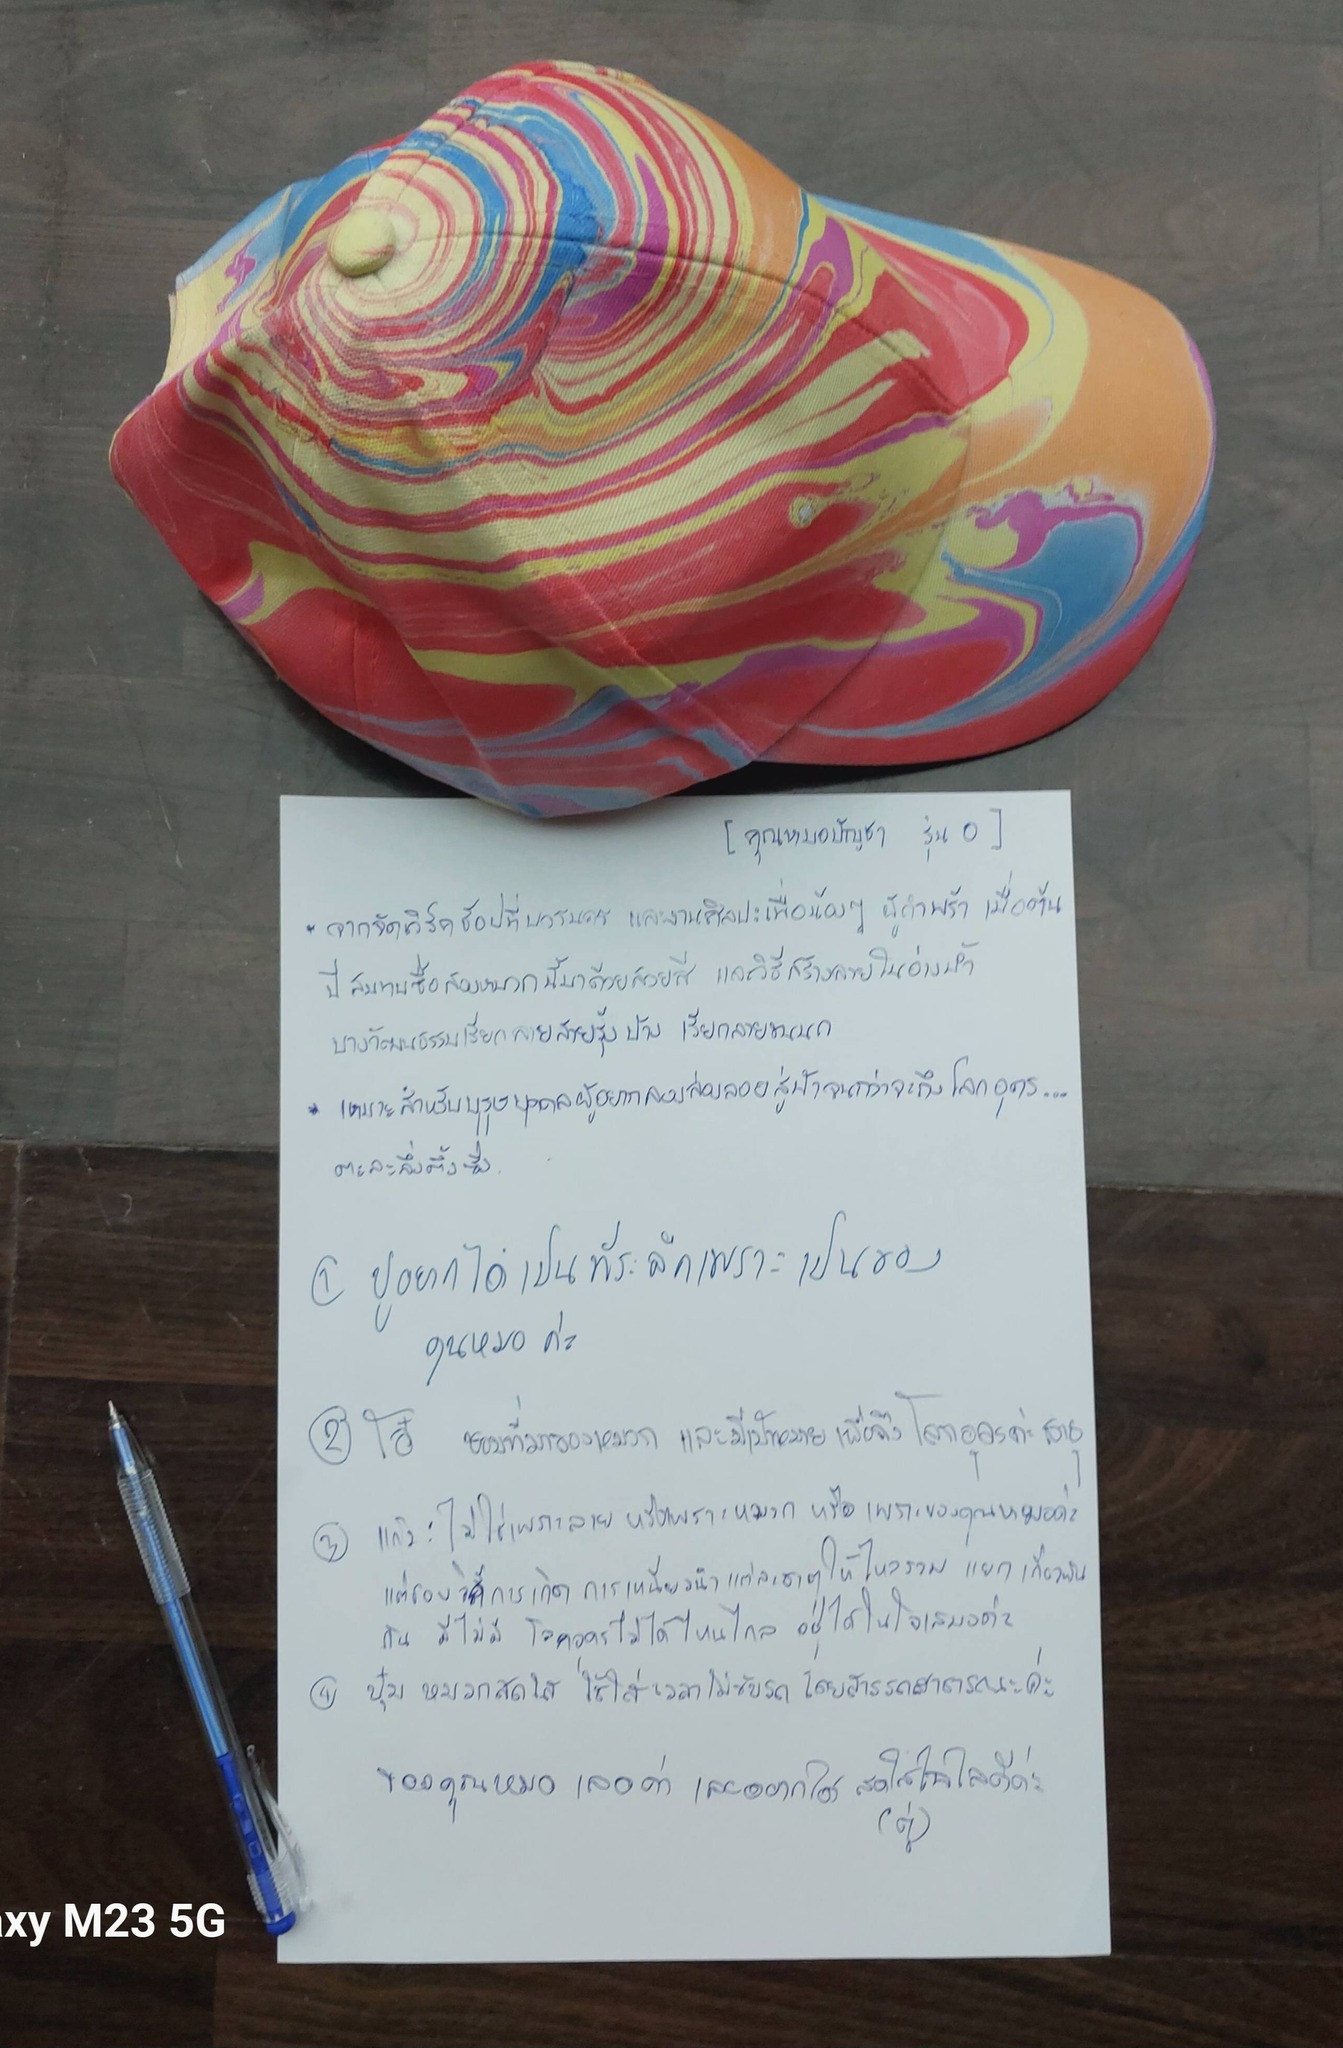 [ คุณหมอบัญชา รุ่น 0 ]
* จากจัดเวิร์คช้อปที่บวรนคร และงานศิลปะเพื่อน้องๆ ผู้กำพร้า เมื่อต้น
ปี สมทบซื้อสอยหมวกนี้มาด้วยสวยสี และวิธีสร้างลายในอ่างน้ำ
บางวัฒนธรรมเรียกลายสายรุ้ง บ้าง เรียกลาย
* เหมาะสำหรับบุรุษบุคคลผู้อยากล่องลอยสู่ฟ้าจนกว่าจะถึงโลกอุดร...
ตะละลึ่งตึ่งซึ่ง.
① ปูอยากได้เป็นที่ระลึกเพราะเป็นของ
คุณหมอ ค่ะ
② โอ๋ ชอบที่มาของหมวก และมีเป้าหมาย เพื่อถึง โลกอุดรค่ะ สาธุ
③ แก้ว : ไม่ใช่เพราะลาย หรือเพราะหมวก หรือ เพราะของคุณหมอค่ะ
แต่ชอบวิธีการเกิด การเหนี่ยวนำแต่ละธาตุให้ไหลรวม แยก เกี่ยวพัน
กัน มีไม่มี โลกอุดรไม่ได้ไหนไกล อยู่ได้ในใจเสมอค่ะ
④ ปุ๋ม หมวกสดใส ใช้ใส่เวลาไม่ขับรถ โดยสารรถสาธารณะค่ะ
ของคุณหมอ เลอค่า เลยอยากได้ สดใสไฉไลดีค่ะ
(ตู่)
axy M23 5G